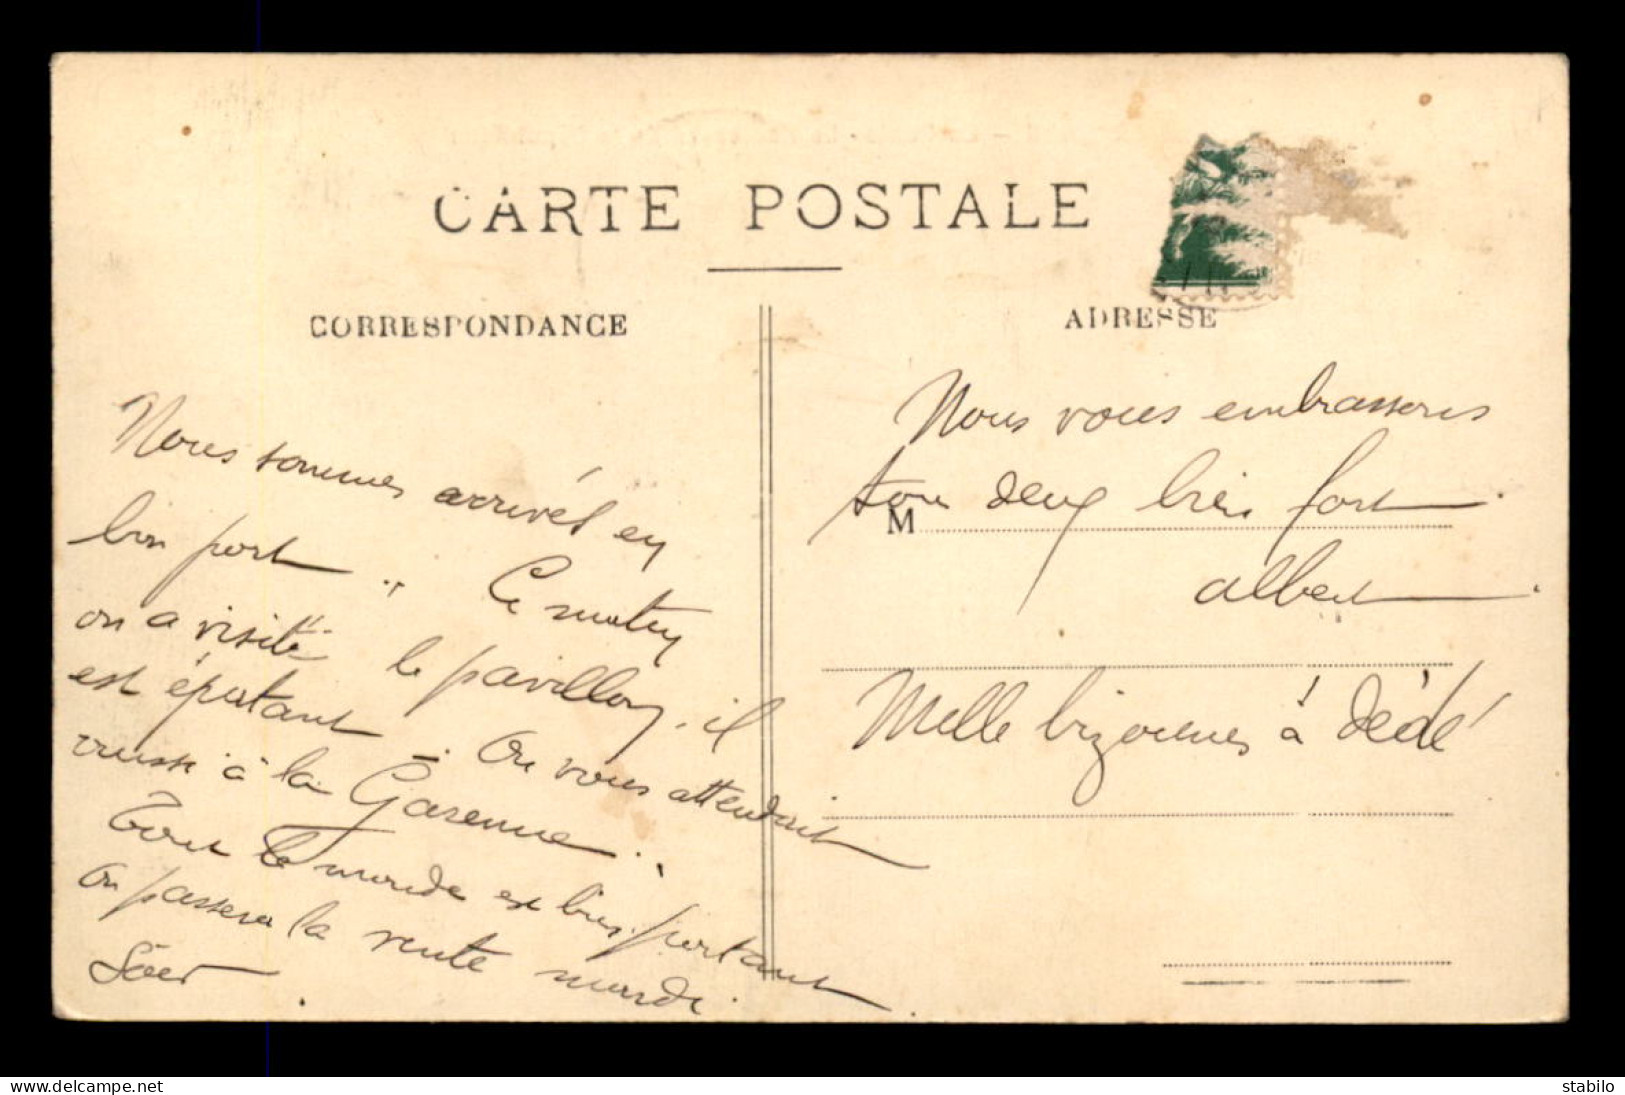 CARTE POSTALE
CORRESPONDANCE
Nous sommes arrivés en
bon port. Ce matin
on a visité le pavillon. il
est épatant. On vous attendait
aussi à la Garenne.
Tout le monde est bien portant
On passera la vente mardi
Soir.
ADRESSE
Nous vous embrassons
tous deux bien fort.
M
albert
Mille bizounes à Dédé
delcampe.net
stabilo